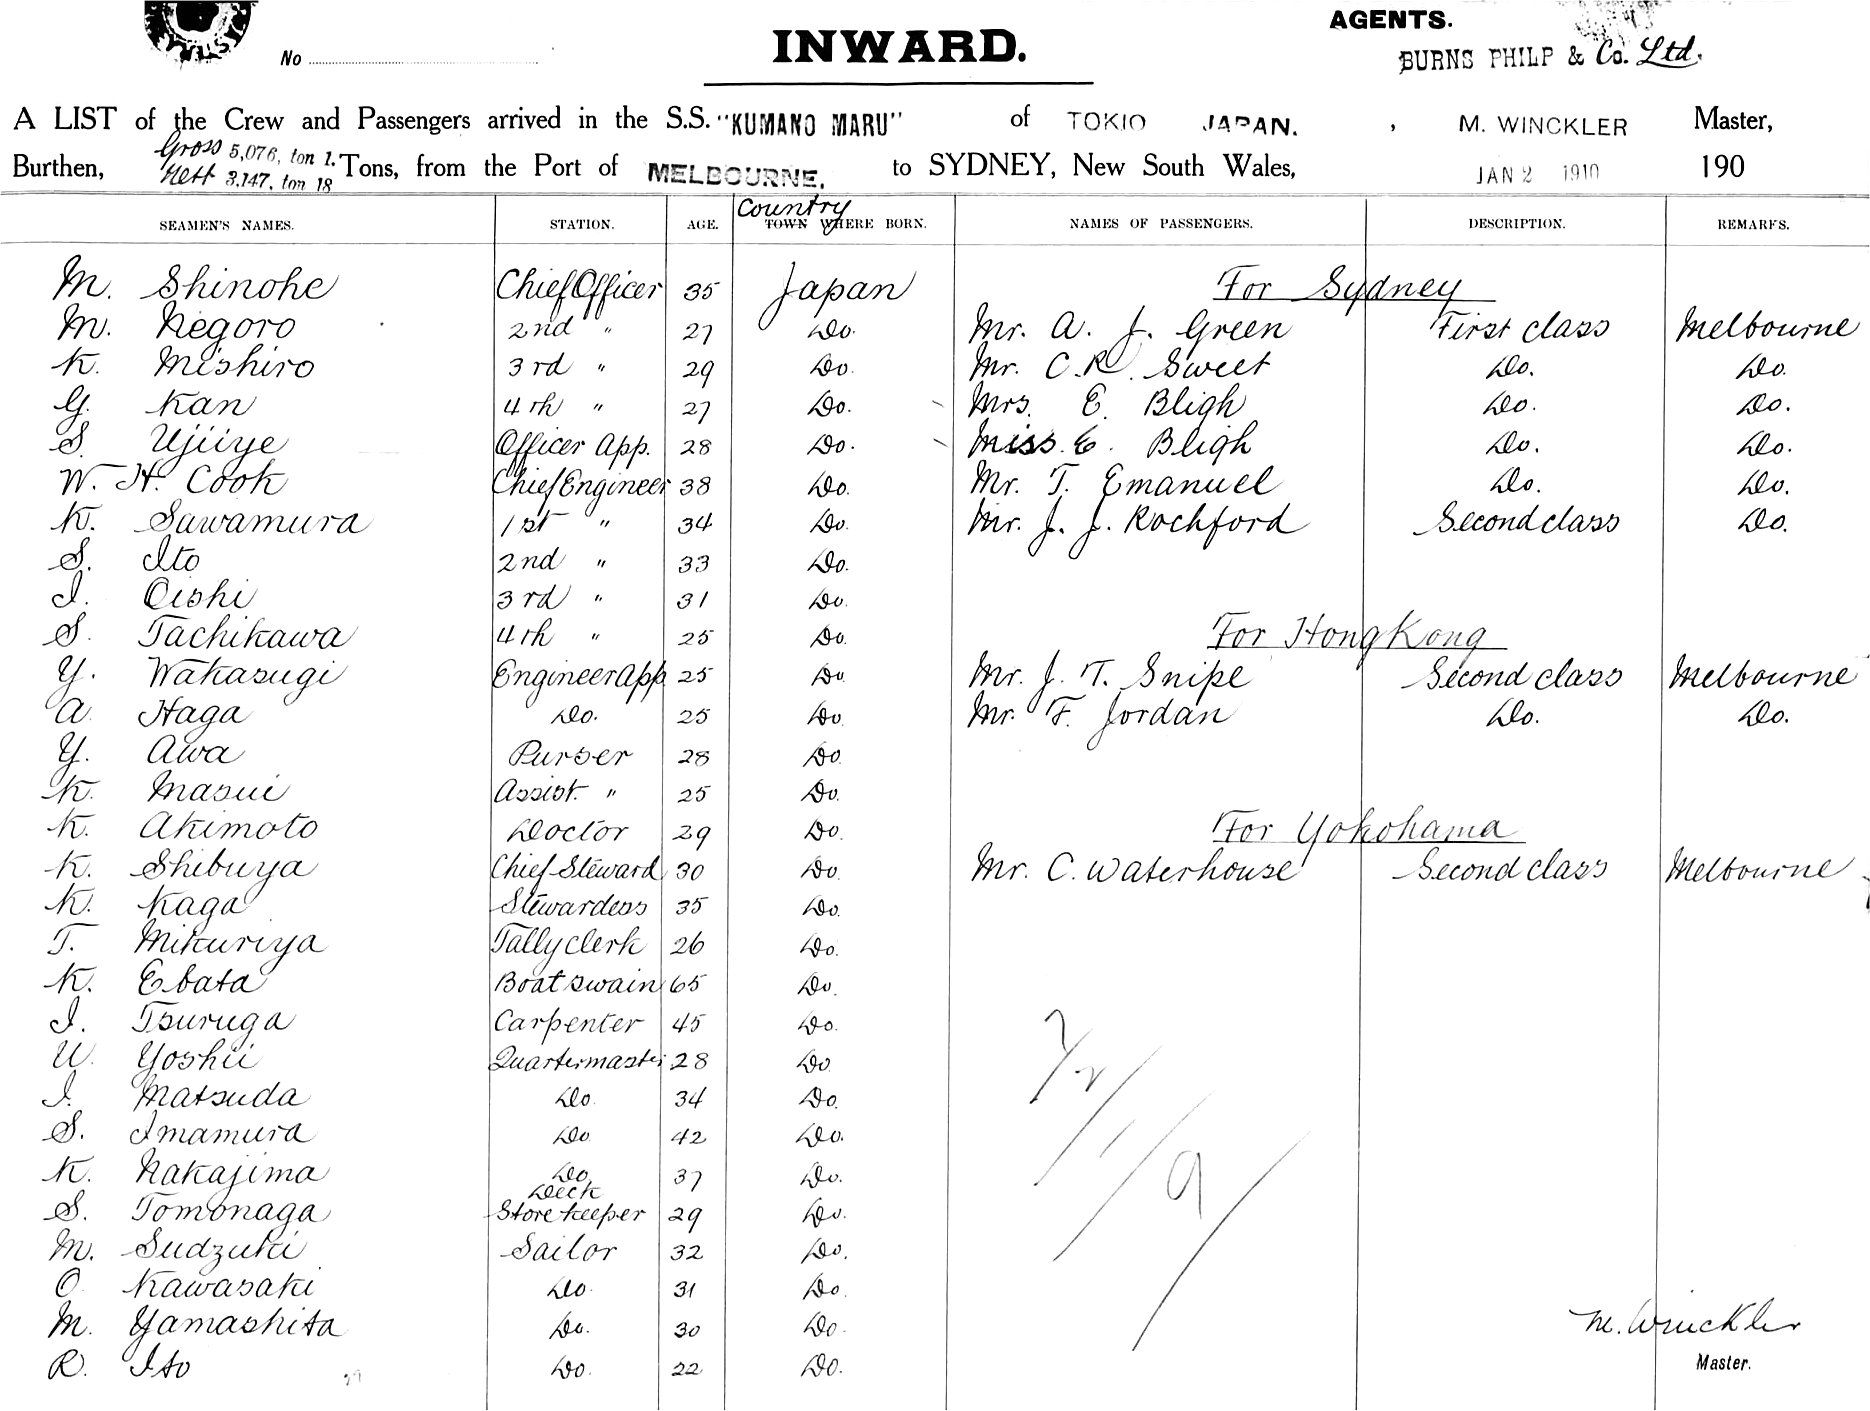 AGENTS.
No
INWARD.
BURNS PHILP & Co. Ltd.
A LIST of the Crew and Passengers arrived in the S.S. "KUMANO MARU" of TOKIO JAPAN. , M. WINCKLER Master,
Burthen, Gross 5,076, ton 1. Nett 3.147, ton 18 Tons, from the Port of MELBOURNE. to SYDNEY, New South Wales, JAN 2 1910 190
SEAMEN'S NAMES. STATION. AGE. Country TOWN WHERE BORN. NAMES OF PASSENGERS. DESCRIPTION. REMARKS.
M. Shinohe Chief Officer 35 Japan For Sydney
M. Negoro 2nd " 27 Do. Mr. A. J. Green First class Melbourne
K. Mishiro 3rd " 29 Do. Mr. C. R. Sweet Do. Do.
G. Kan 4th " 27 Do. Mrs. E. Bligh Do. Do.
S. Ujiiye Officer App. 28 Do. Miss. E. Bligh Do. Do.
W. H. Cook Chief Engineer 38 Do. Mr. T. Emanuel Do. Do.
K. Sawamura 1st " 34 Do. Mr. J. J. Rochford Second class Do.
S. Ito 2nd " 33 Do.
I. Oishi 3rd " 31 Do.
S. Tachikawa 4th " 25 Do. For Hong Kong
Y. Wakasugi Engineer App. 25 Do. Mr. J. T. Snipe Second class Melbourne
A. Haga Do. 25 Do. Mr. F. Jordan Do. Do.
Y. Awa Purser 28 Do.
K. Masui Assist. " 25 Do.
K. Akimoto Doctor 29 Do. For Yokohama
K. Shibuya Chief Steward 30 Do. Mr. C. Waterhouse Second class Melbourne
K. Kaga Stewardess 35 Do.
T. Mikuriya Tally clerk 26 Do.
K. Ebata Boatswain 65 Do.
I. Tsuruga Carpenter 45 Do.
U. Yoshii Quartermaster 28 Do.
I. Matsuda Do. 34 Do.
S. Imamura Do. 42 Do.
K. Nakajima Do. 37 Do.
S. Tomonaga Deck Storekeeper 29 Do.
M. Sudzuki Sailor 32 Do.
O. Kawasaki Do. 31 Do.
M. Yamashita Do. 30 Do.
R. Ito Do. 22 Do.
M. Winckler
Master.